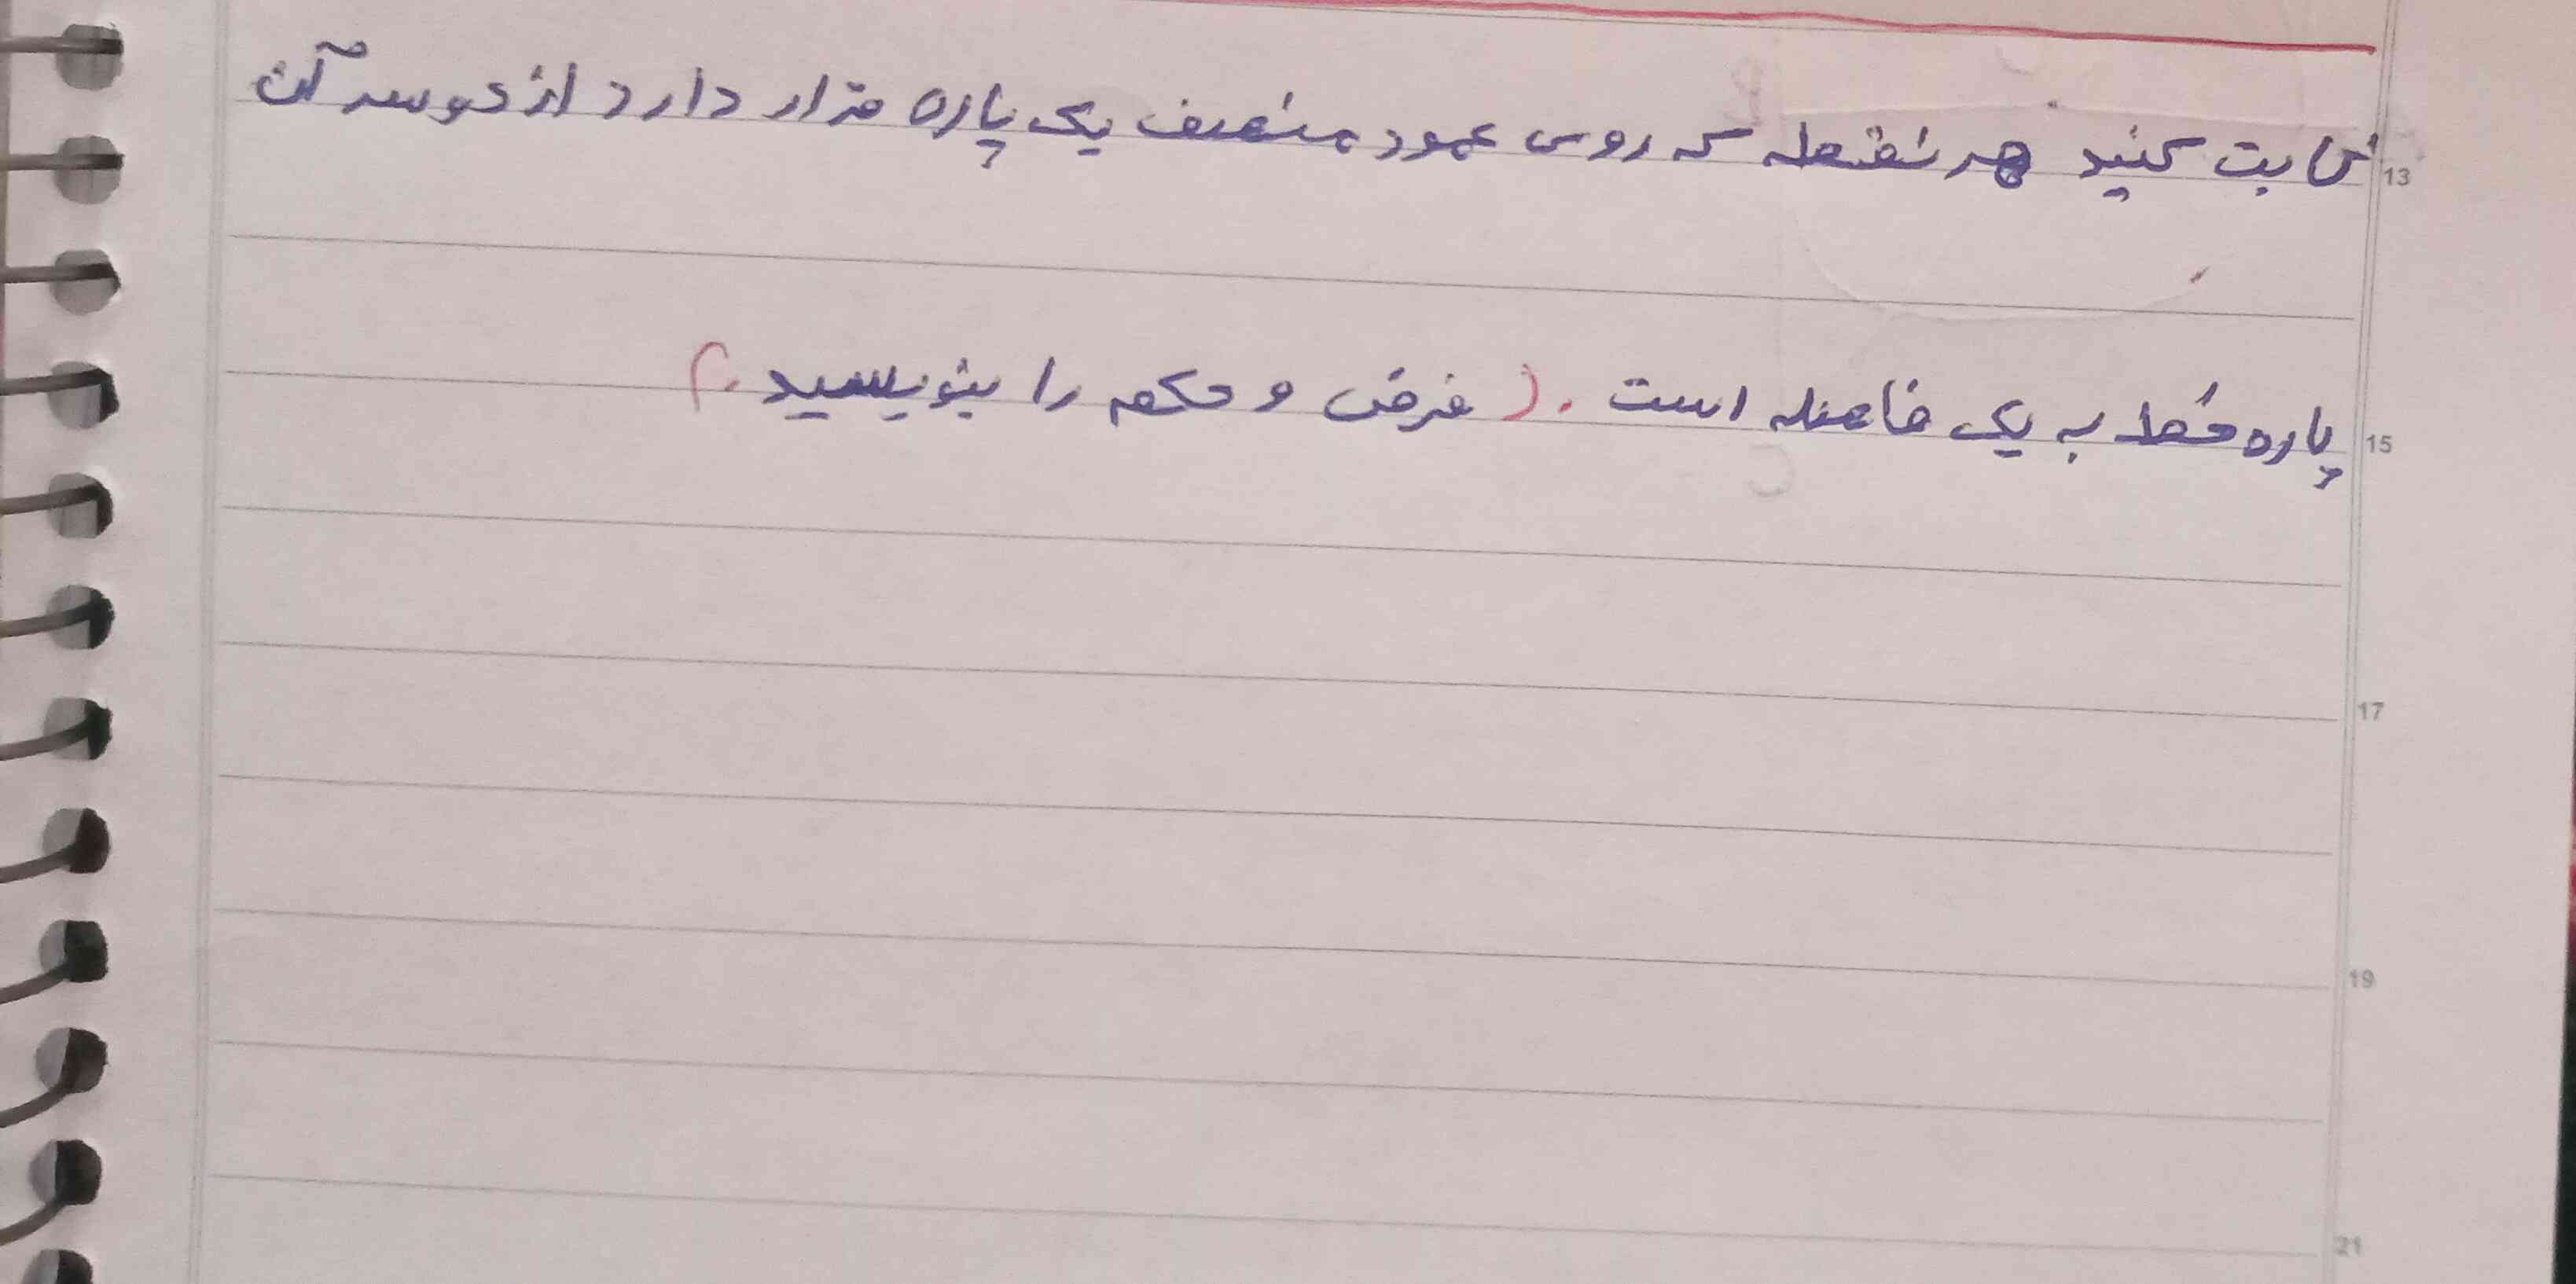 ثابت کنید هر نقطه که روی عمود منصف یک پاره قرار دارد از دو سر آن
پاره خط به یک فاصله است . ( فرض و حکم را بنویسید . )
13
15
17
19
21